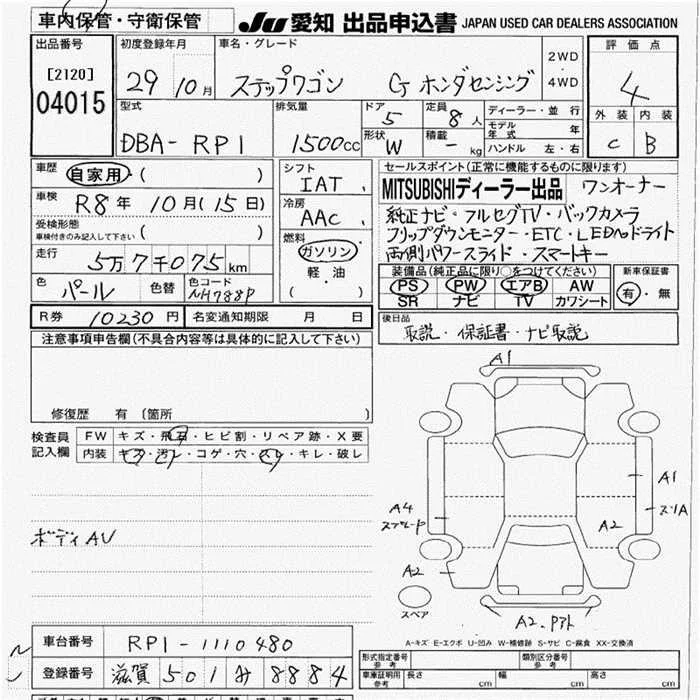 車内保管・守衛保管
JU 愛知 出品申込書 JAPAN USED CAR DEALERS ASSOCIATION
出品番号
[2120]
04015
初度登録年月
29 10月
車名・グレード
ステップワゴン G ホンダセンシング
2WD
・
4WD
評価点
4
外装 内装
C B
型式
DBA-RP1
排気量
1500cc
ドア
5
形状 W
定員
8人
積載
- kg
ディーラー・並行
モデル年式 年
ハンドル 左・右
車歴 自家用 ( )
車検 R8年 10月(15日)
受検形態
車検付きのみ記入して下さい ( )
走行 5万7千075km
色 パール 色替 色コード NH788P
シフト
IAT
冷房
AAC
燃料
ガソリン
軽油
( )
セールスポイント(正常に機能するものに限ります)
MITSUBISHIディーラー出品 ワンオーナー
純正ナビ・フルセグTV・バックカメラ
フリップダウンモニター・ETC・LEDヘッドライト
両側パワースライド・スマートキー
装備品(純正品に限り○をつけてください)
PS PW エアB AW
SR ナビ TV カワシート
新車保証書
有・無
R券 10230円 名変通知期限 月 日
後日品
取説・保証書・ナビ取説
注意事項申告欄(不具合内容等は具体的に記入して下さい)
修復歴 有(箇所 )
検査員記入欄
FW キズ・飛石・ヒビ割・リペア跡・X要
内装 キズ・汚レ・コゲ・穴・スレ・キレ・破レ
ボディAU
A1
A1
スリA
A4
A2
A2
スペア
A2.
A-キズ E-エクボ U-凹み W-補修跡 S-サビ C-腐食 XX-交換済
車台番号 RP1-1110480
登録番号 滋賀 501 み 8884
形式指定番号
参考
類別区分番号
参考
車庫証明用
参考
長さ cm 幅 cm 高さ cm